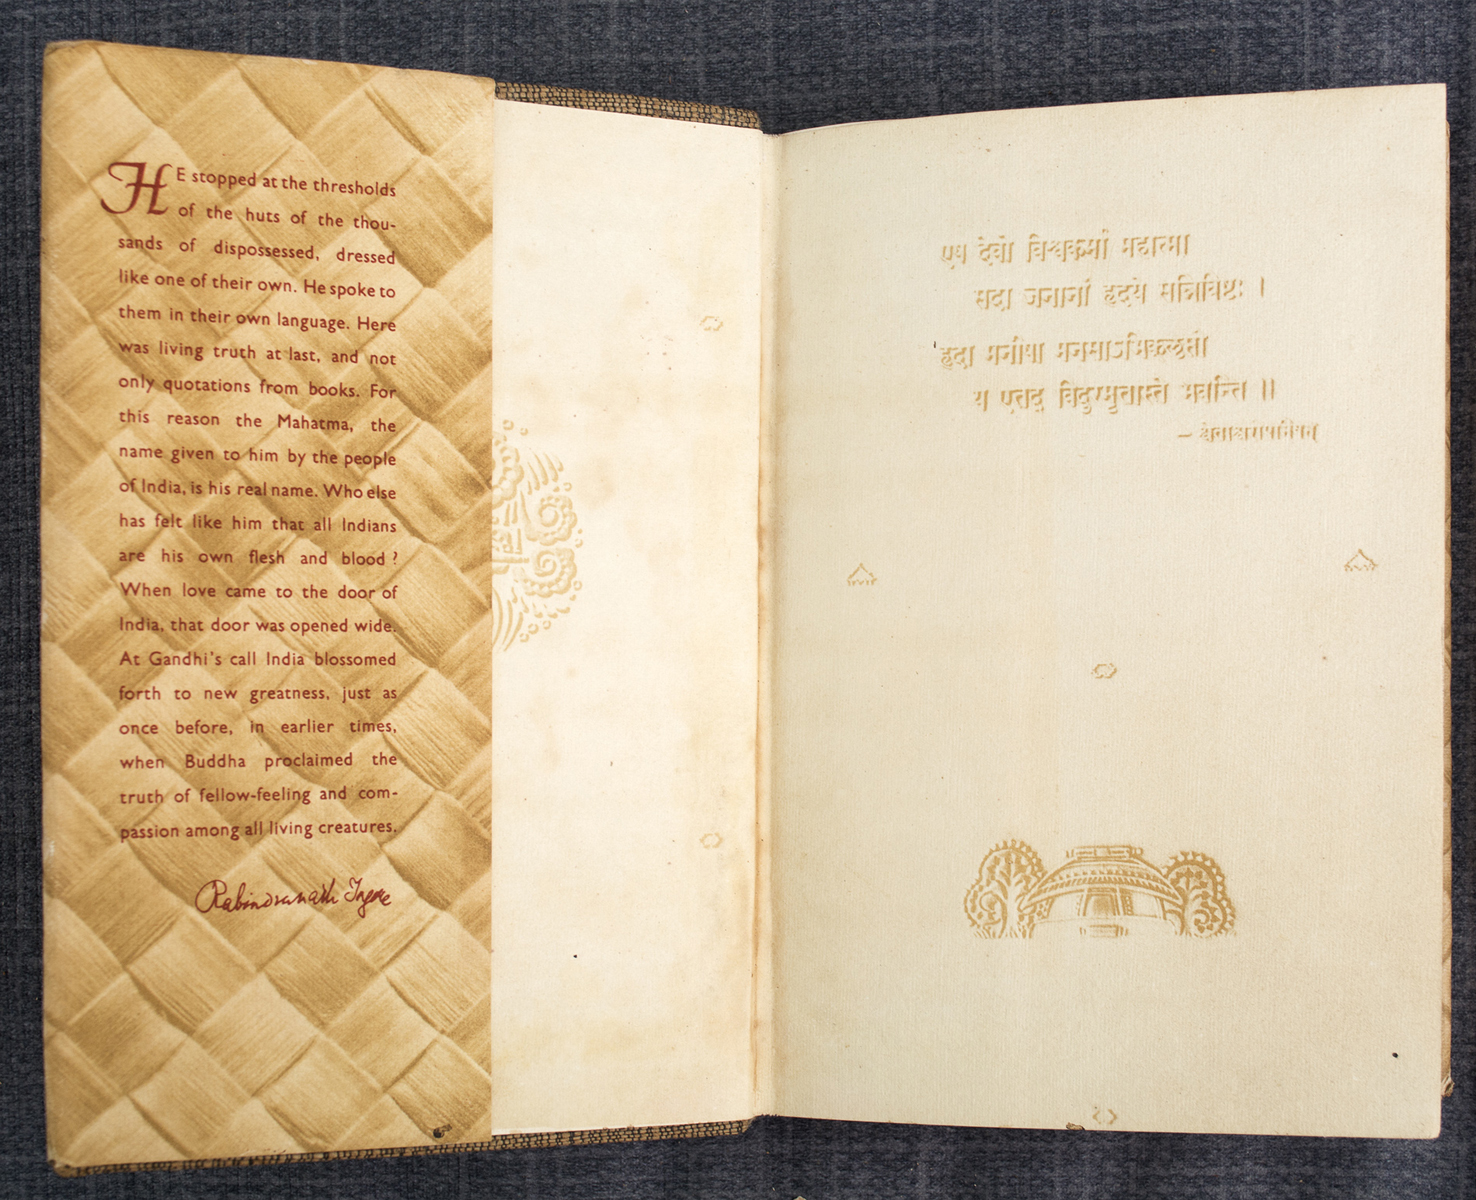 HE stopped at the thresholds
of the huts of the thou-
sands of dispossessed, dressed
like one of their own. He spoke to
them in their own language. Here
was living truth at last, and not
only quotations from books. For
this reason the Mahatma, the
name given to him by the people
of India, is his real name. Who else
has felt like him that all Indians
are his own flesh and blood ?
When love came to the door of
India, that door was opened wide.
At Gandhi's call India blossomed
forth to new greatness, just as
once before, in earlier times,
when Buddha proclaimed the
truth of fellow-feeling and com-
passion among all living creatures.
Rabindranath Tagore
एष देवो विश्वकर्मा महात्मा
सदा जनानां हृदये सन्निविष्टः ।
हृदा मनीषा मनसाऽभिक्लृप्तो
य एतद् विदुरमृतास्ते भवन्ति ॥